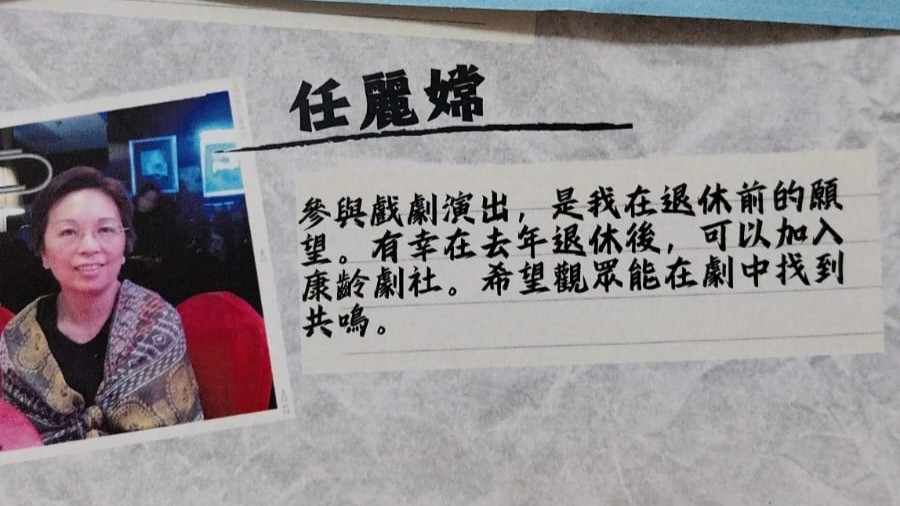 任麗嫦
參與戲劇演出，是我在退休前的願
望。有幸在去年退休後，可以加入
康齡劇社。希望觀眾能在劇中找到
共鳴。